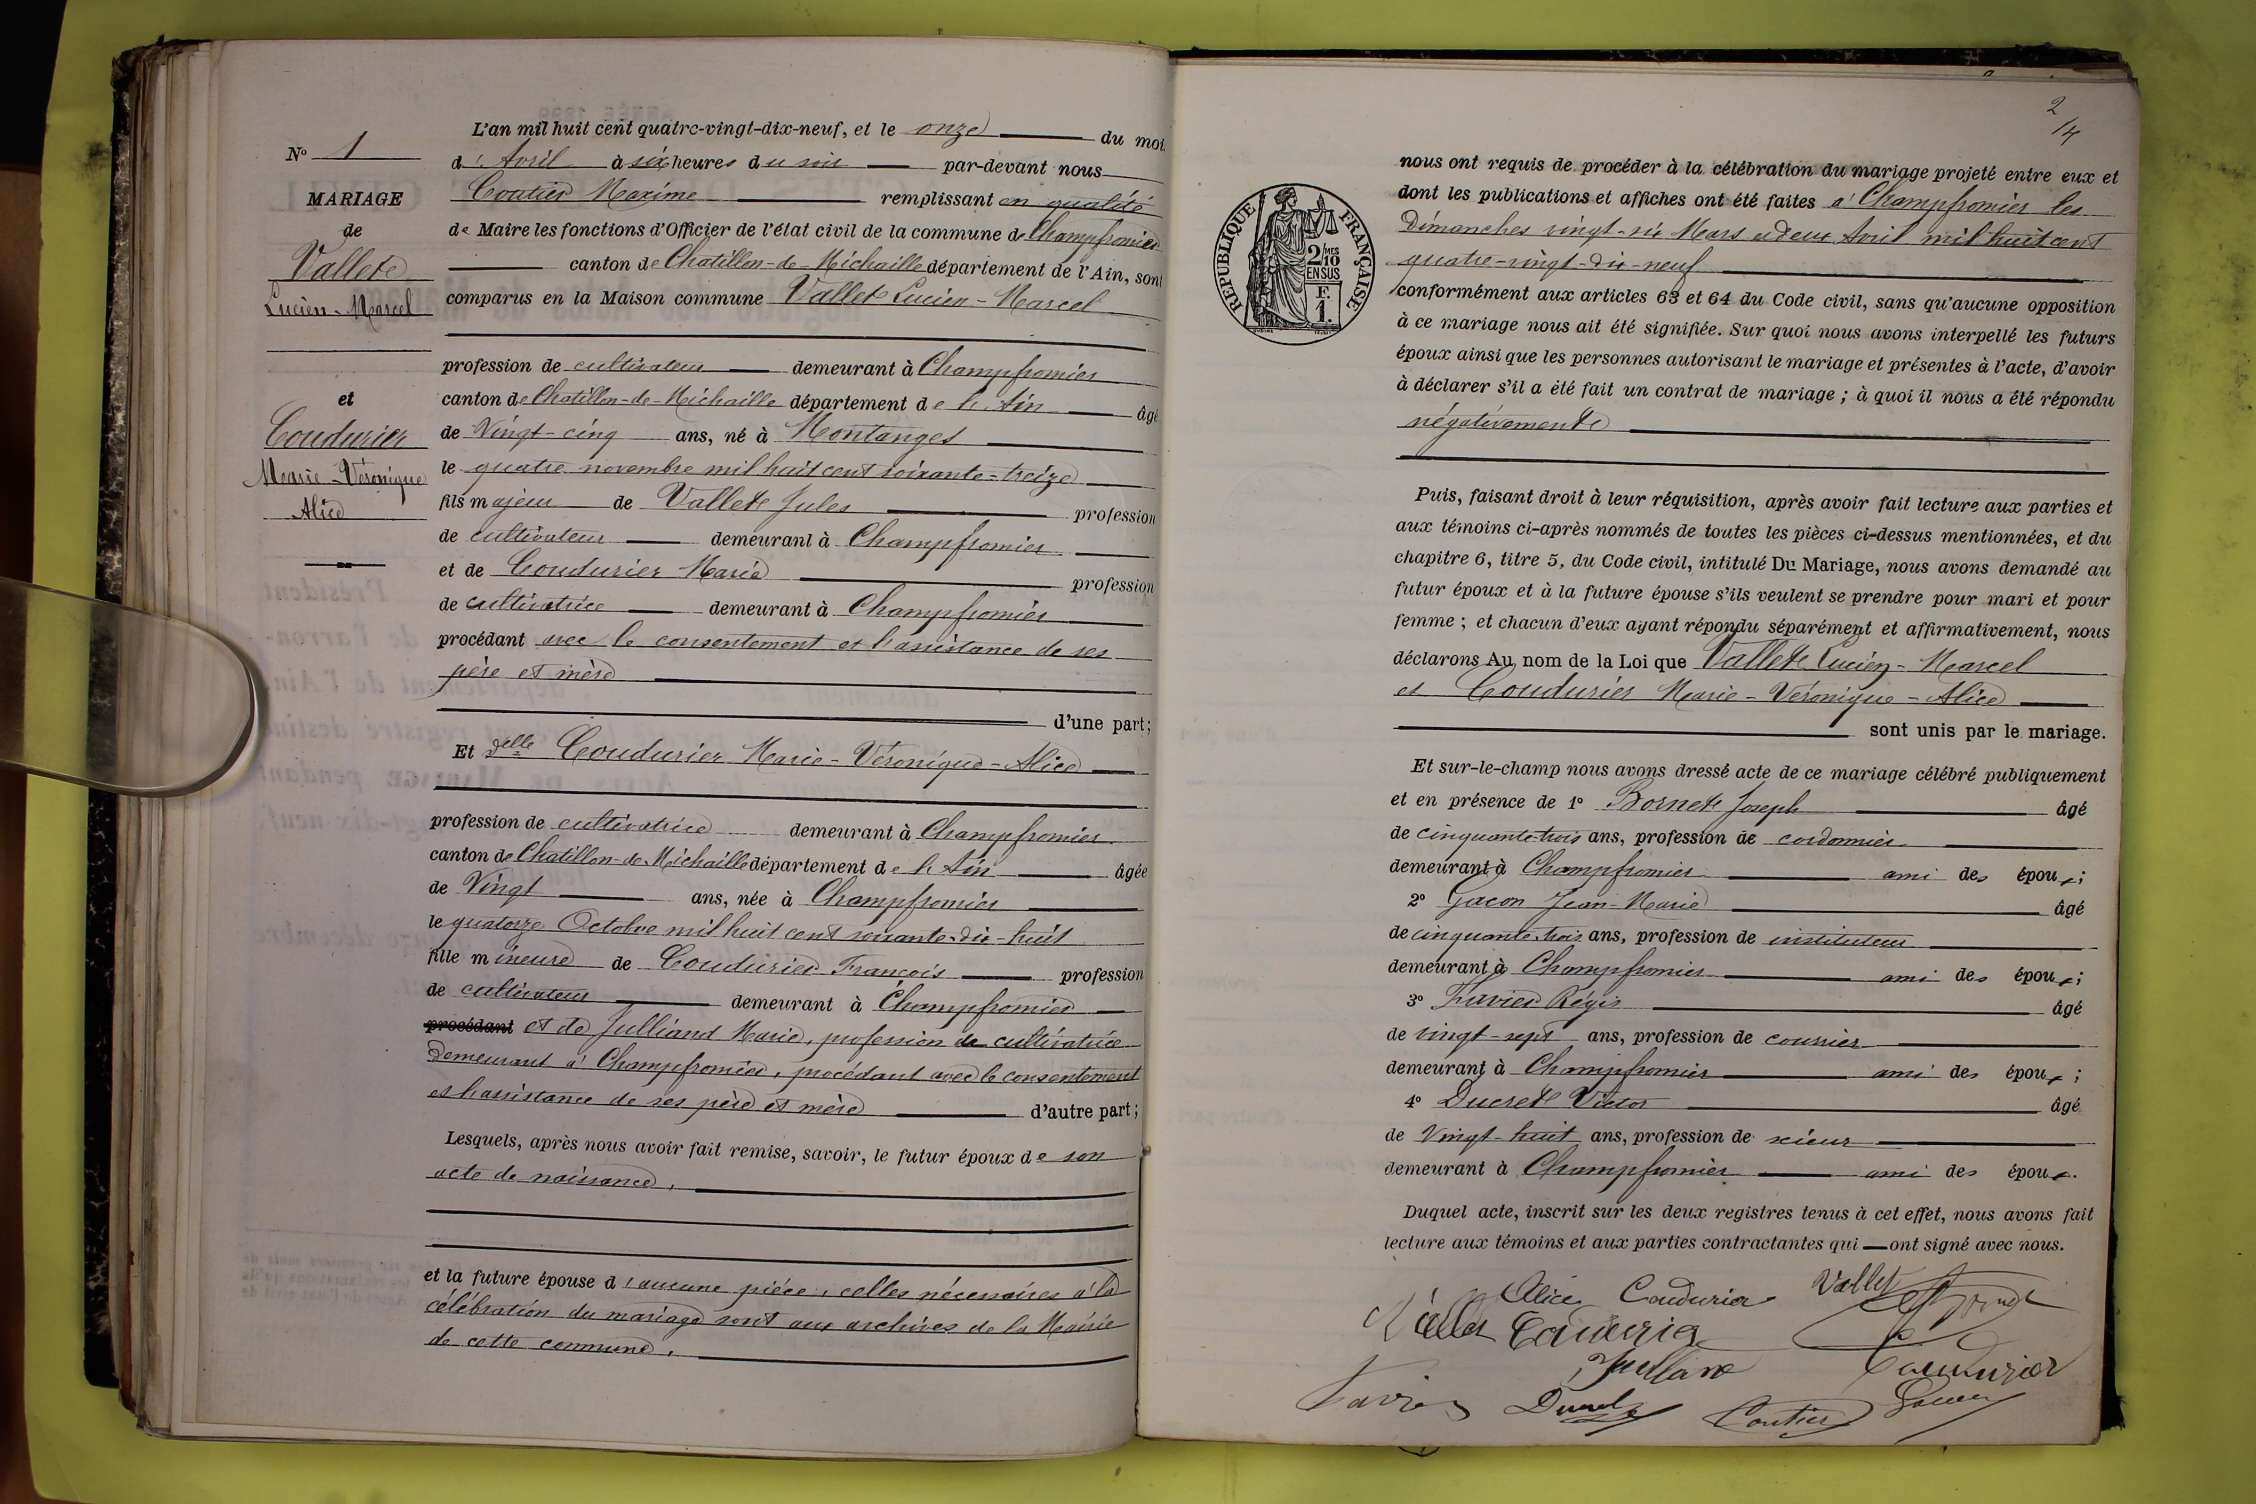 N° 1
MARIAGE
de
Vallet
Lucien-Marcel
et
Coudurier
Marie-Véronique
Alice
L'an mil huit cent quatre-vingt-dix-neuf, et le onze du moi
d'Avril à six heures du soir par-devant nous
Coutier Maxime remplissant en qualité
de Maire les fonctions d'Officier de l'état civil de la commune de Champfromier
canton de Chatillon-de-Michaille département de l'Ain, sont
comparus en la Maison commune Vallet Lucien-Marcel
profession de cultivateur demeurant à Champfromier
canton de Chatillon-de-Michaille département de l'Ain âgé
de Vingt-cinq ans, né à Montanges
le quatre novembre mil huit cent soixante-treize
fils majeur de Vallet Jules profession
de cultivateur demeurant à Champfromier
et de Coudurier Marie profession
de cultivatrice demeurant à Champfromier
procédant avec le consentement et l'assistance de ses
père et mère
d'une part;
Et delle Coudurier Marie-Véronique-Alice
profession de cultivatrice demeurant à Champfromier
canton de Chatillon-de-Michaille département de l'Ain âgée
de Vingt ans, née à Champfromier
le quatorze Octobre mil huit cent soixante-dix-huit
fille mineure de Coudurier François profession
de cultivateur demeurant à Champfromier
procédant et de Julliand Marie, profession de cultivatrice
demeurant à Champfromier, procédant avec le consentement
et l'assistance de ses père et mère d'autre part;
Lesquels, après nous avoir fait remise, savoir, le futur époux de son
acte de naissance,
et la future épouse d'aucune pièce, celles nécessaires à la
célébration du mariage sont aux archives de la Mairie
de cette commune,
2/4
RÉPUBLIQUE FRANÇAISE
2/10 MES
EN SUS
F.
1.
nous ont requis de procéder à la célébration du mariage projeté entre eux et
dont les publications et affiches ont été faites à Champfromier les
Dimanches vingt-six Mars et deux Avril mil huit cent
quatre-vingt-dix-neuf
conformément aux articles 63 et 64 du Code civil, sans qu'aucune opposition
à ce mariage nous ait été signifiée. Sur quoi nous avons interpellé les futurs
époux ainsi que les personnes autorisant le mariage et présentes à l'acte, d'avoir
à déclarer s'il a été fait un contrat de mariage ; à quoi il nous a été répondu
négativement
Puis, faisant droit à leur réquisition, après avoir fait lecture aux parties et
aux témoins ci-après nommés de toutes les pièces ci-dessus mentionnées, et du
chapitre 6, titre 5, du Code civil, intitulé Du Mariage, nous avons demandé au
futur époux et à la future épouse s'ils veulent se prendre pour mari et pour
femme ; et chacun d'eux ayant répondu séparément et affirmativement, nous
déclarons Au nom de la Loi que Vallet Lucien-Marcel
et Coudurier Marie-Véronique-Alice
sont unis par le mariage.
Et sur-le-champ nous avons dressé acte de ce mariage célébré publiquement
et en présence de 1° Bornet Joseph âgé
de cinquante-trois ans, profession de cordonnier
demeurant à Champfromier ami des époux;
2° Gacon Jean-Marie âgé
de cinquante-trois ans, profession de instituteur
demeurant à Champfromier ami des époux;
3° Favier Régis âgé
de vingt-sept ans, profession de courrier
demeurant à Champfromier ami des époux;
4° Ducret Victor âgé
de Vingt-huit ans, profession de scieur
demeurant à Champfromier ami des époux.
Duquel acte, inscrit sur les deux registres tenus à cet effet, nous avons fait
lecture aux témoins et aux parties contractantes qui ont signé avec nous.
Alice Coudurier Vallet
Vallet Coudurier
Julliand Coudurier
Favier Ducret Coutier Gacon